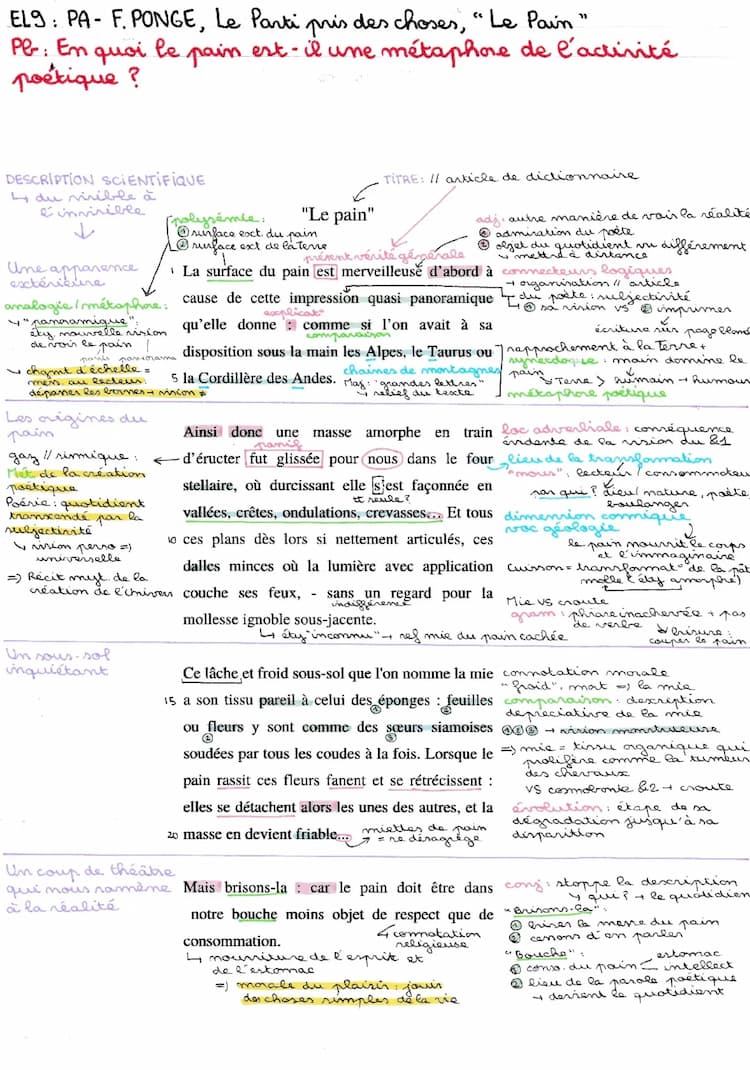 EL9 : PA - F. PONGE, Le Parti pris des choses, "Le Pain"
Pb : En quoi le pain est-il une métaphore de l'activité
poétique ?
DESCRIPTION SCIENTIFIQUE
↳ du visible à
l'invisible
TITRE : // article de dictionnaire
"Le pain"
polysémie :
① surface ext du pain
② surface ext de la Terre
présent vérité générale
adj : autre manière de voir la réalité
① admiration du poète
② objet du quotidien vu différemment
→ mettre à distance
Une apparence
extérieure
analogie / métaphore :
↳ "panoramique" :
éty nouvelle vision
de voir le pain
panorama
↳ chgmt d'échelle =
mens au lecteur
dépasser les bornes → vision ≠
1 La surface du pain est merveilleuse d'abord à
cause de cette impression quasi panoramique
explicat°
qu'elle donne : comme si l'on avait à sa
comparaison
disposition sous la main les Alpes, le Taurus ou
chaînes de montagnes
5 la Cordillère des Andes.
Maj : "grandes lettres"
↳ relief du texte
connecteurs logiques
→ organisation // article
du poète : subjectivité
↳ ① sa vision VS ② imprimer
écriture sur page blanche
rapprochement à la Terre +
synecdoque : main domine le
pain
↳ Terre > humain → humour
métaphore poétique
Les origines du
pain
gaz // sismique :
Met de la création
poétique
Poésie : quotidient
transcendé par la
subjectivité
↳ vision perso =>
universelle
=> Récit myt. de la
création de l'Univers
Ainsi donc une masse amorphe en train
passif
d'éructer fut glissée pour nous dans le four
stellaire, où durcissant elle s'est façonnée en
et seule ?
vallées, crêtes, ondulations, crevasses... Et tous
10 ces plans dès lors si nettement articulés, ces
dalles minces où la lumière avec application
couche ses feux, - sans un regard pour la
indifférence
mollesse ignoble sous-jacente.
↳ éty "inconnu" → ref mie du pain cachée
loc adverbiale : conséquence
évidente de la vision du §1
lieu de la transformation
"nous" : lecteur / consommateur
par qui ? dieu / nature, poète,
boulanger
dimension cosmique
voc géologie
le pain nourrit le corps
et l'immaginaire
Cuisson = transformat° de la pât
molle (éty amorphe)
Mie VS croute
gram : phrase inachevée + pas
de verbe
↳ brisure :
couper le pain
Un sous-sol
inquiétant
Ce lâche et froid sous-sol que l'on nomme la mie
15 a son tissu pareil à celui des éponges : feuilles
ou fleurs y sont comme des sœurs siamoises
soudées par tous les coudes à la fois. Lorsque le
pain rassit ces fleurs fanent et se rétrécissent :
elles se détachent alors les unes des autres, et la
20 masse en devient friable...
miettes de pain
= se désagrège
connotation morale
"froid", mort => la mie
comparaison : description
dépréciative de la mie
①②③ → vision monstrueuse
=> mie = tissu organique qui
prolifère comme la tumeur
des chevaux
VS cosmo §2 → croute
évolution : étape de sa
dégradation jusqu'à sa
disparition
Un coup de théâtre
qui nous ramène
à la réalité
Mais brisons-la : car le pain doit être dans
notre bouche moins objet de respect que de
consommation.
connotation
religieuse
↳ nourriture de l'esprit et
de l'estomac
=> morale du plaisir : jouir
des choses simples de la vie
conj : stoppe la description
↳ qui ? → le quotidien
"Brisons-la" :
① briser la masse du pain
② cessons d'en parler
"Bouche" :
① conso. du pain estomac
intellect
② lieu de la parole poétique
→ devient le quotidient